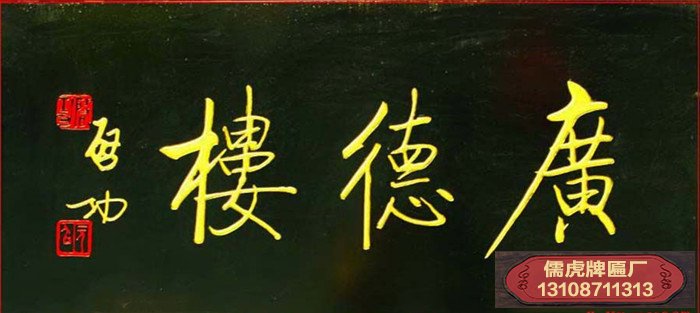 廣德樓
啟功
儒虎牌匾厂
13108711313